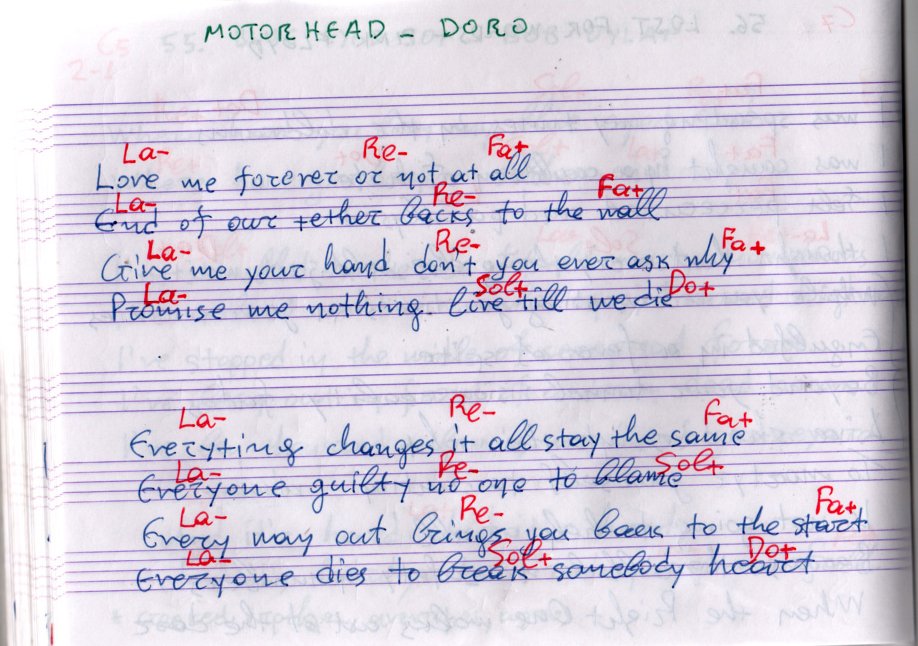 MOTORHEAD - DORO
La- Re- Fa+
Love me forever or not at all
La- Re- Fa+
End of our tether backs to the wall
La- Re- Fa+
Give me your hand don't you ever ask why
La- Sol+ Do+
Promise me nothing. live till we die
La- Re- Fa+
Everyting changes it all stay the same
La- Re- Sol+
Everyone guilty no one to blame
La- Re- Fa+
Every way out brings you back to the start
La- Sol+ Do+
Everyone dies to break somebody heart